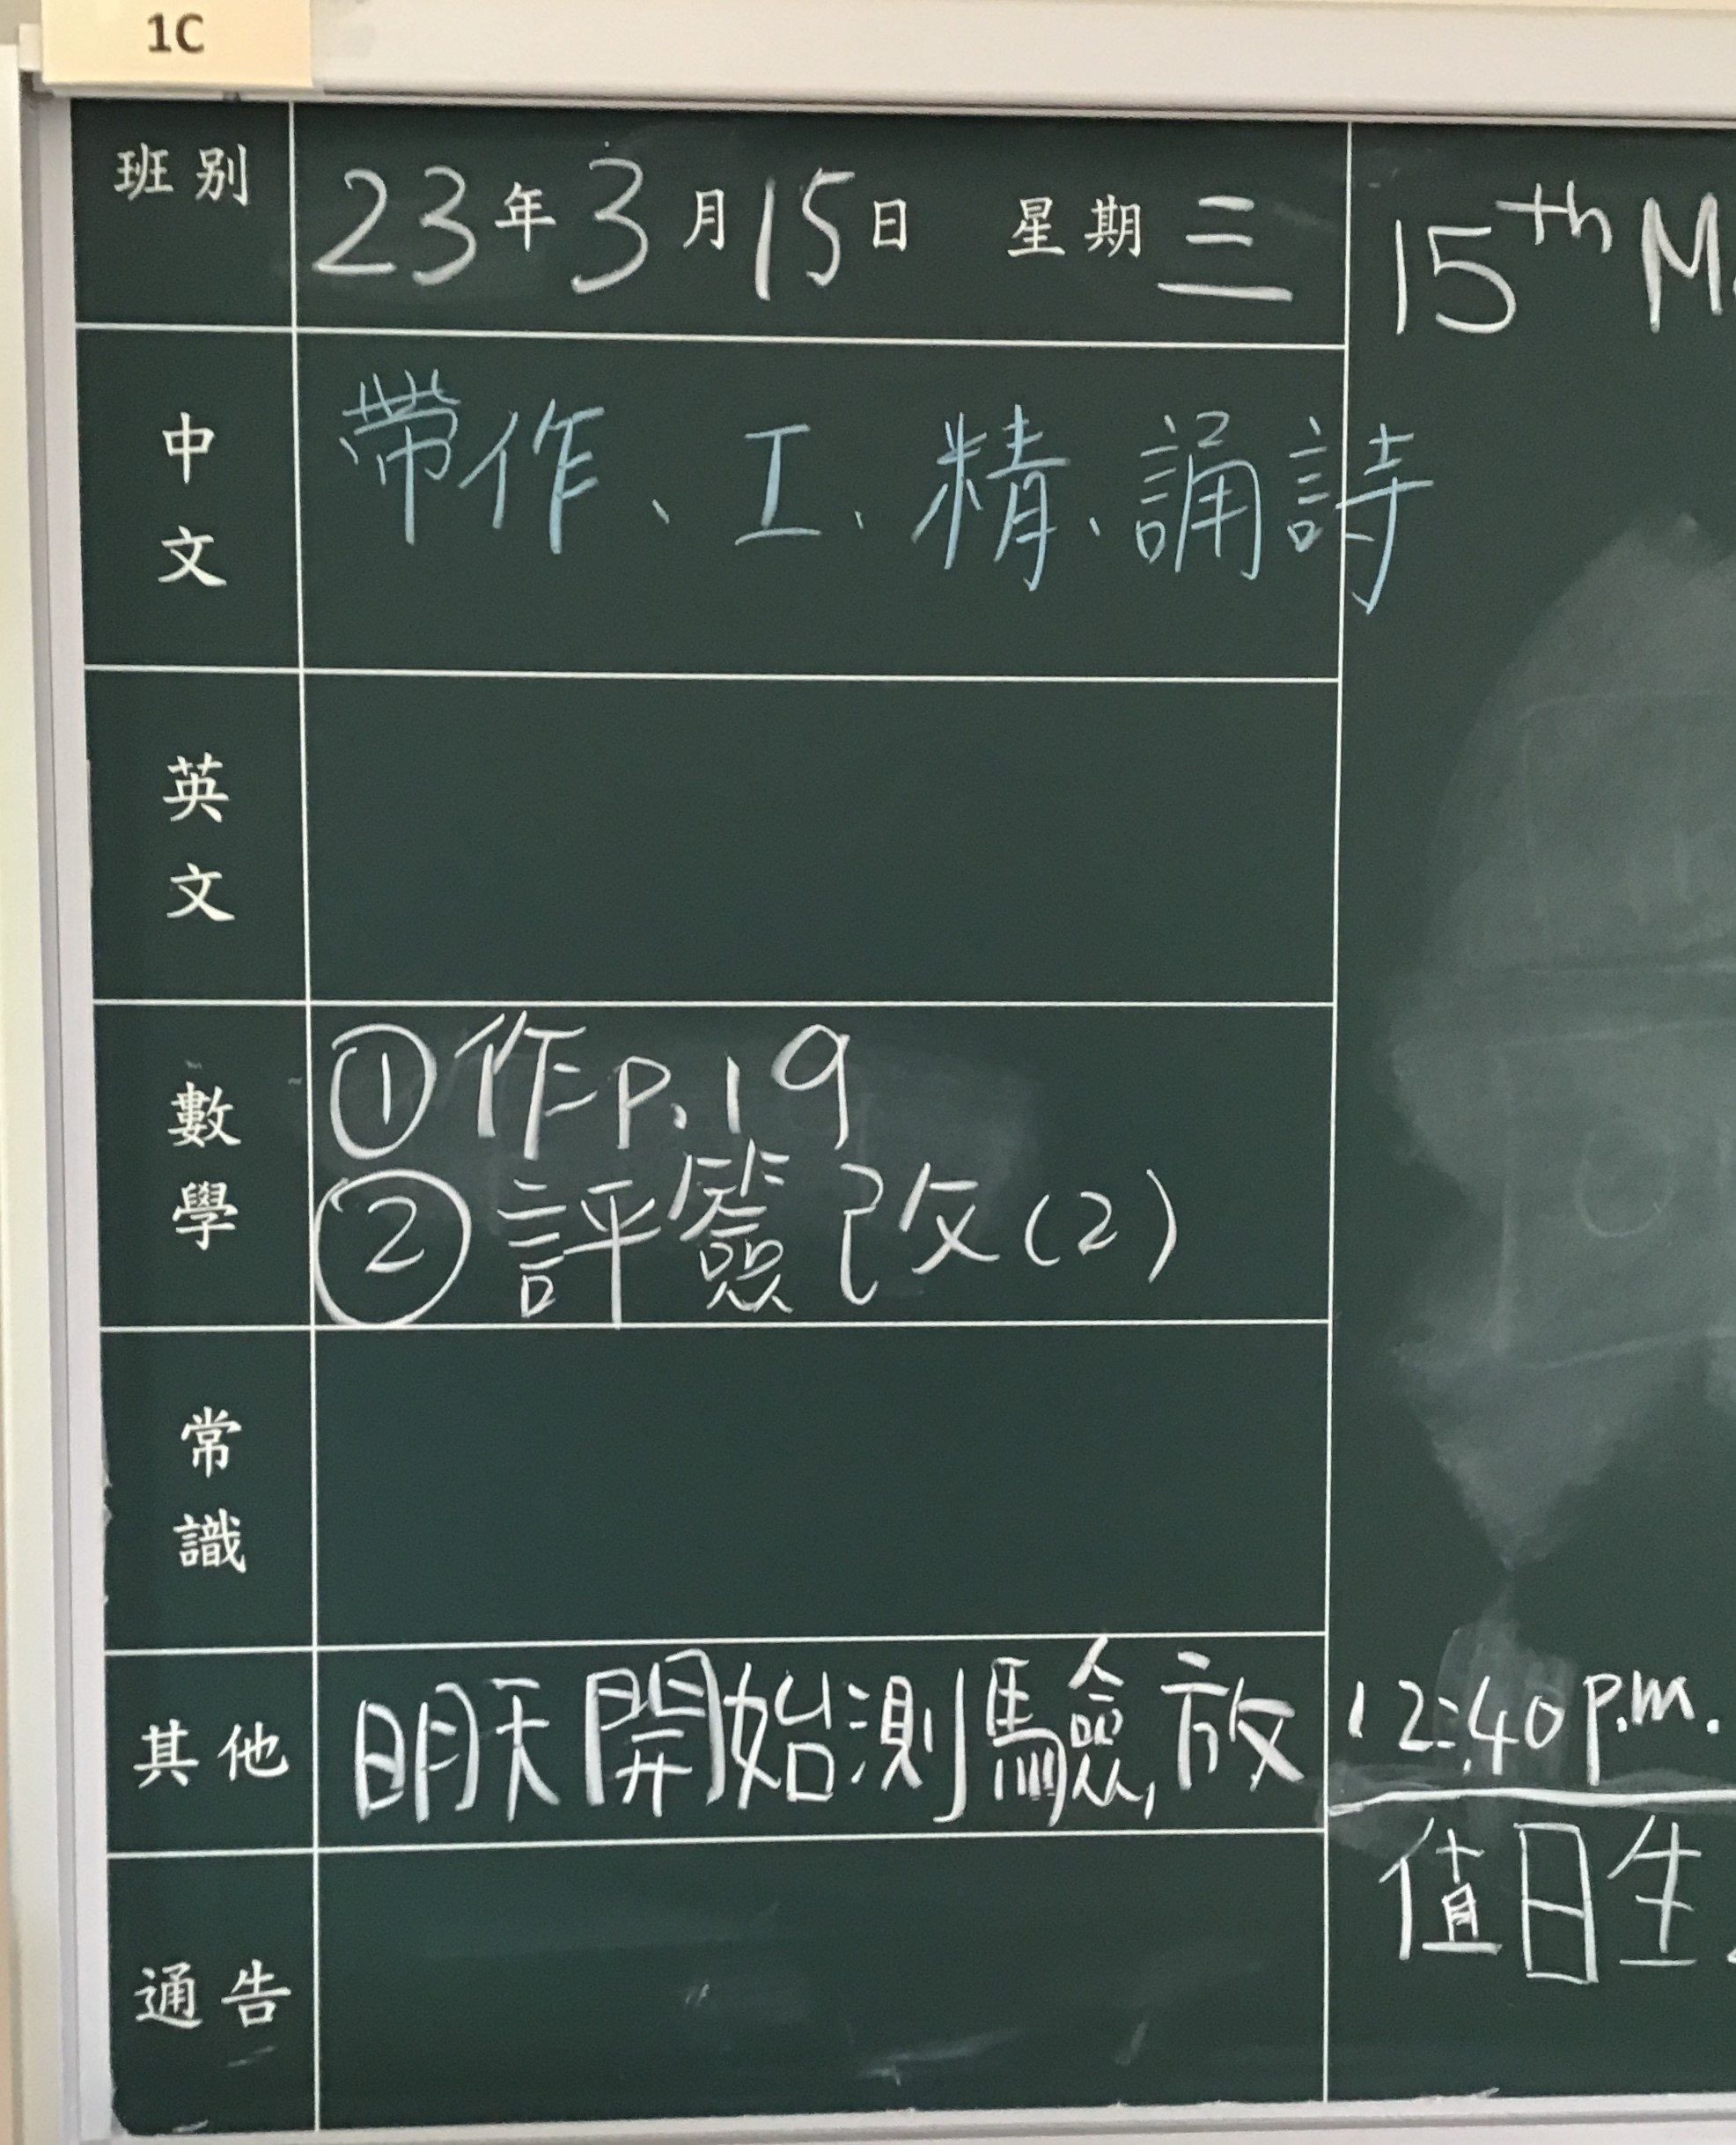 1C
班別 23年3月15日 星期三
15th M
中文 帶作、工、精、誦詩
英文
數學 ①作p.19
②評簽改(2)
常識
其他 明天開始測驗,放 12:40 p.m.
值日生
通告